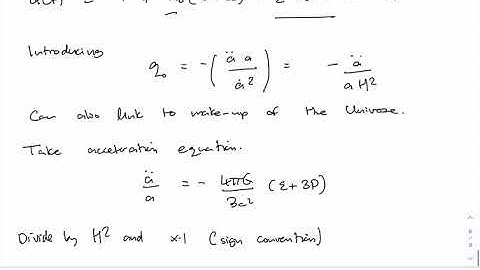 Introducing
q₀ = -(ä a / ȧ²) = - ä / a H²
Can also link to make-up of the Universe.
Take acceleration equation.
ä / a = - 4πG / 3c² (ε+3P)
Divide by H² and x-1 (sign convention)